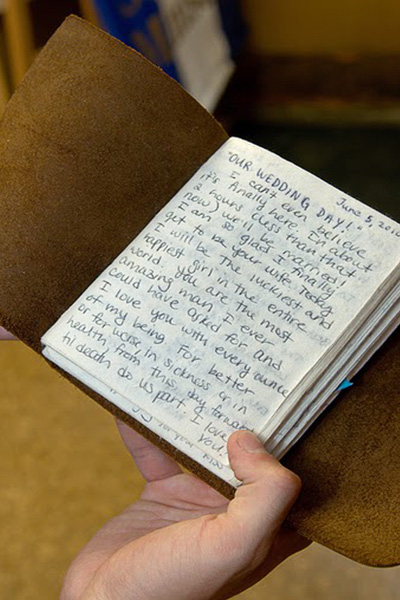 June 5, 2010
"OUR WEDDING DAY!"
I can't even believe
it's finally here. In about
2 hours (less than that
now) we'll be married!
I am so glad I finally
get to be your wife. Today
I will be the luckiest and
happiest girl in the entire
world. You are the most
amazing man I ever
could have asked for and
I love you with every ounce
of my being. For better
or for worse in sickness or in
health, from this day forward
'til death do us part. I love
you.